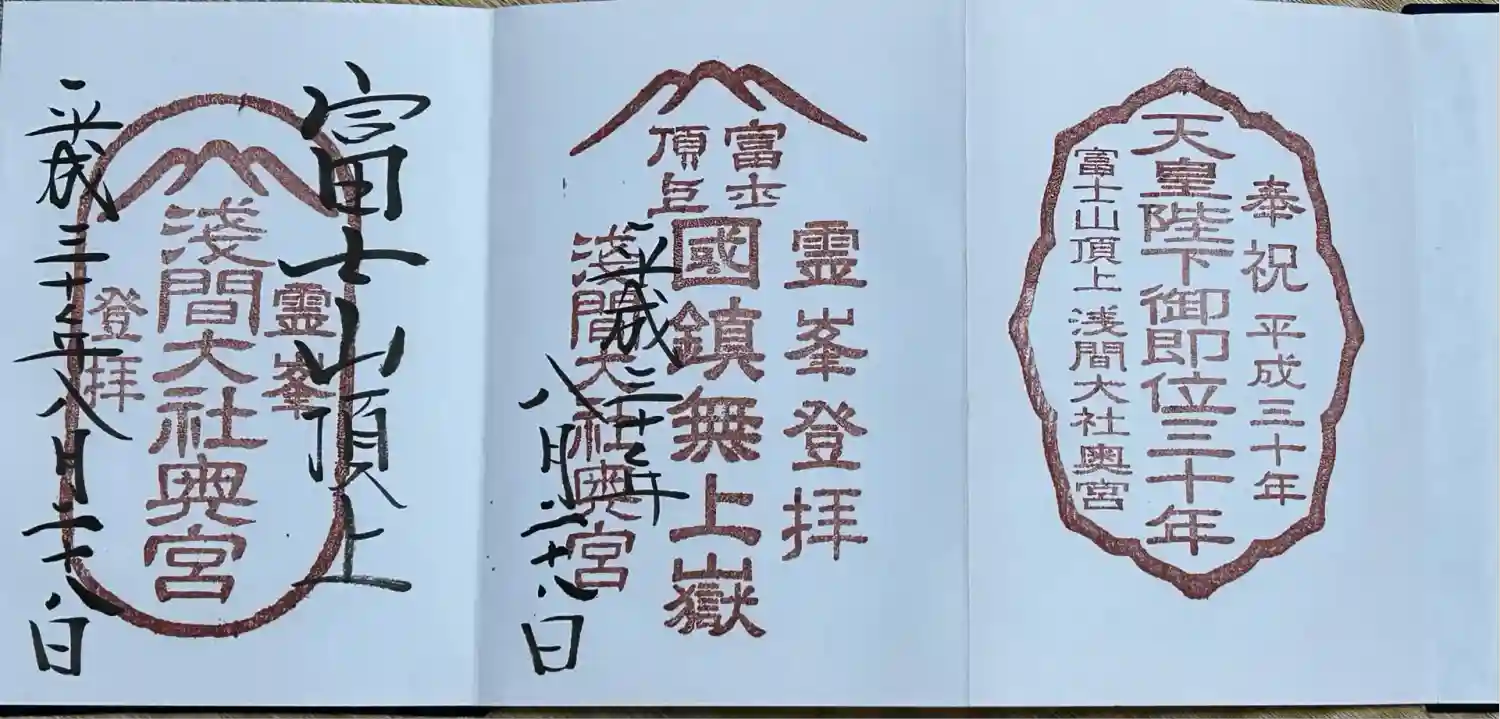 奉祝 平成三十年
天皇陛下御即位三十年
富士山頂上 浅間大社奥宮
霊峯登拝
富士
頂上
國鎮無上嶽
浅間大社奥宮
平成三十年
八月二十八日
富士山頂上
霊峯
浅間大社奥宮
登拝
平成三十年八月二十八日